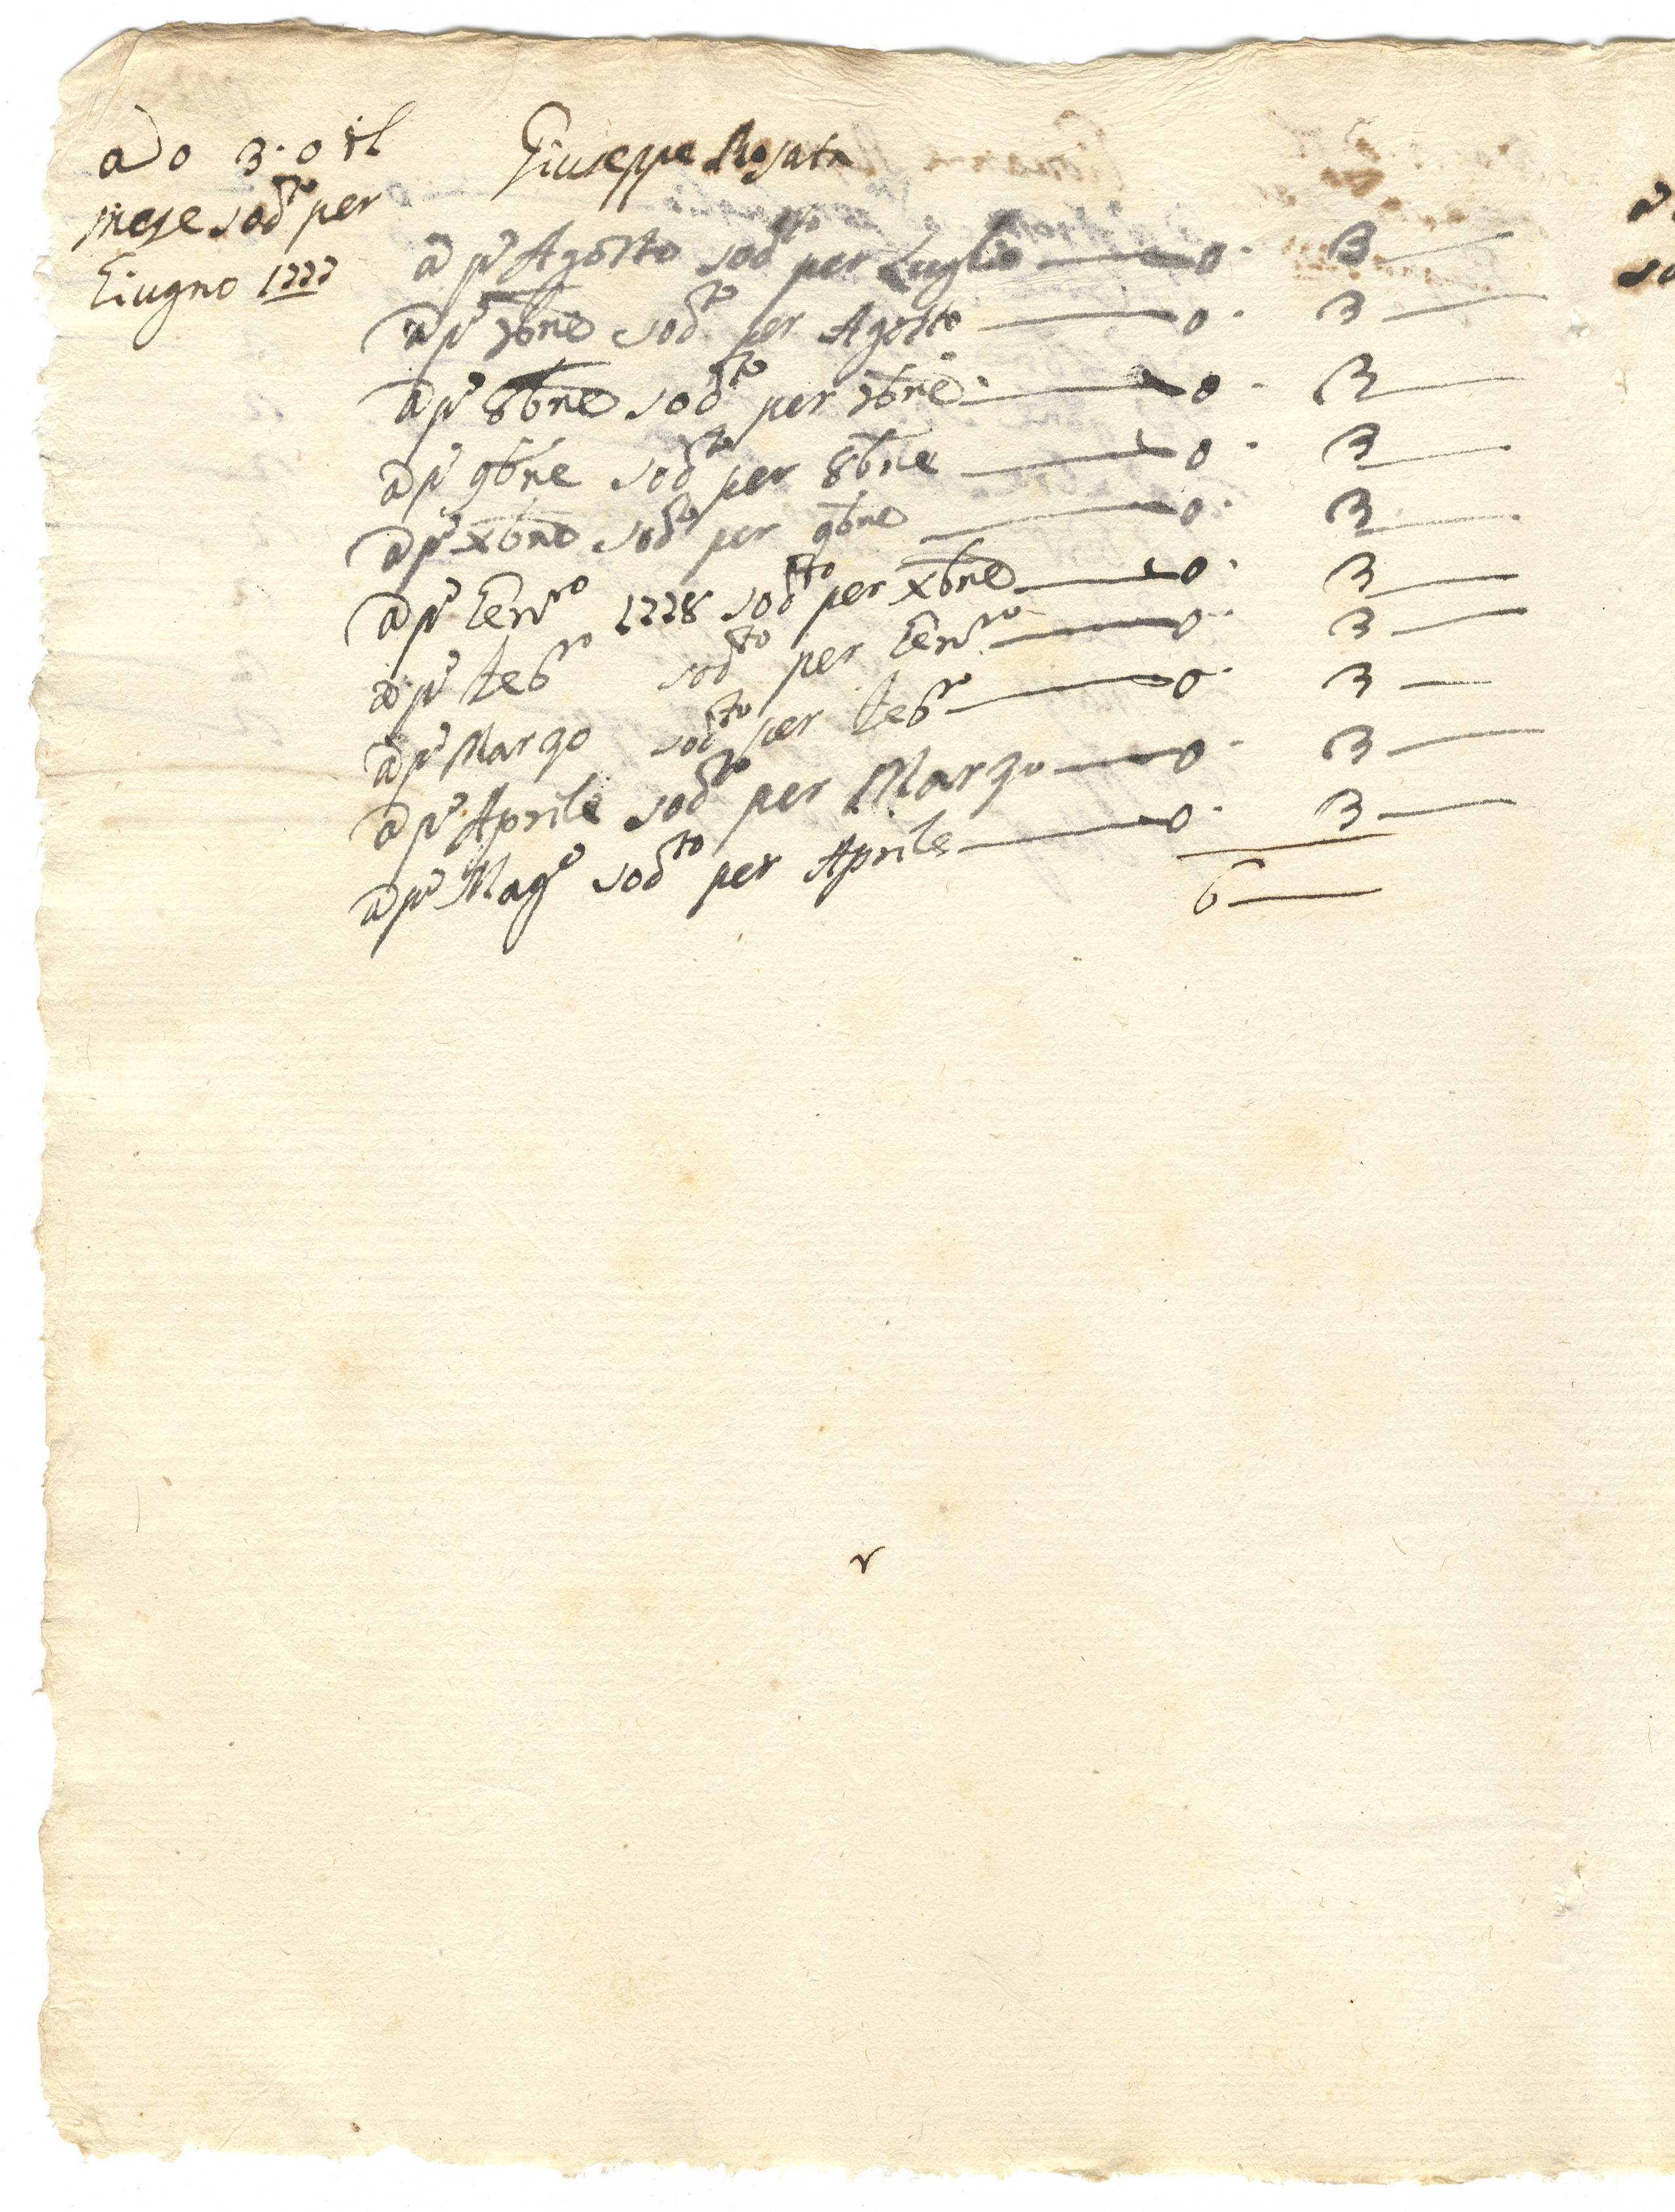 a D 0 3·0 il
mese sodto per
Giugno 1777
Giuseppe Rosata
a pº Agosto sodto per Luglio — 0· 3 —
a pº 7bre sodto per Agosto — 0· 3 —
a pº 8bre sodto per 7bre — 0· 3 —
a pº 9bre sodto per 8bre — 0· 3 —
a pº Xbre sodto per 9bre — 0· 3 —
a pº Genro 1778 sodto per Xbre — 0· 3 —
a pº Febro sodto per Genro — 0· 3 —
a pº Marzo sodto per Febro — 0· 3 —
a pº Aprile sodto per Marzo — 0· 3 —
a pº Magº sodto per Aprile — 0· 3 —
6 —